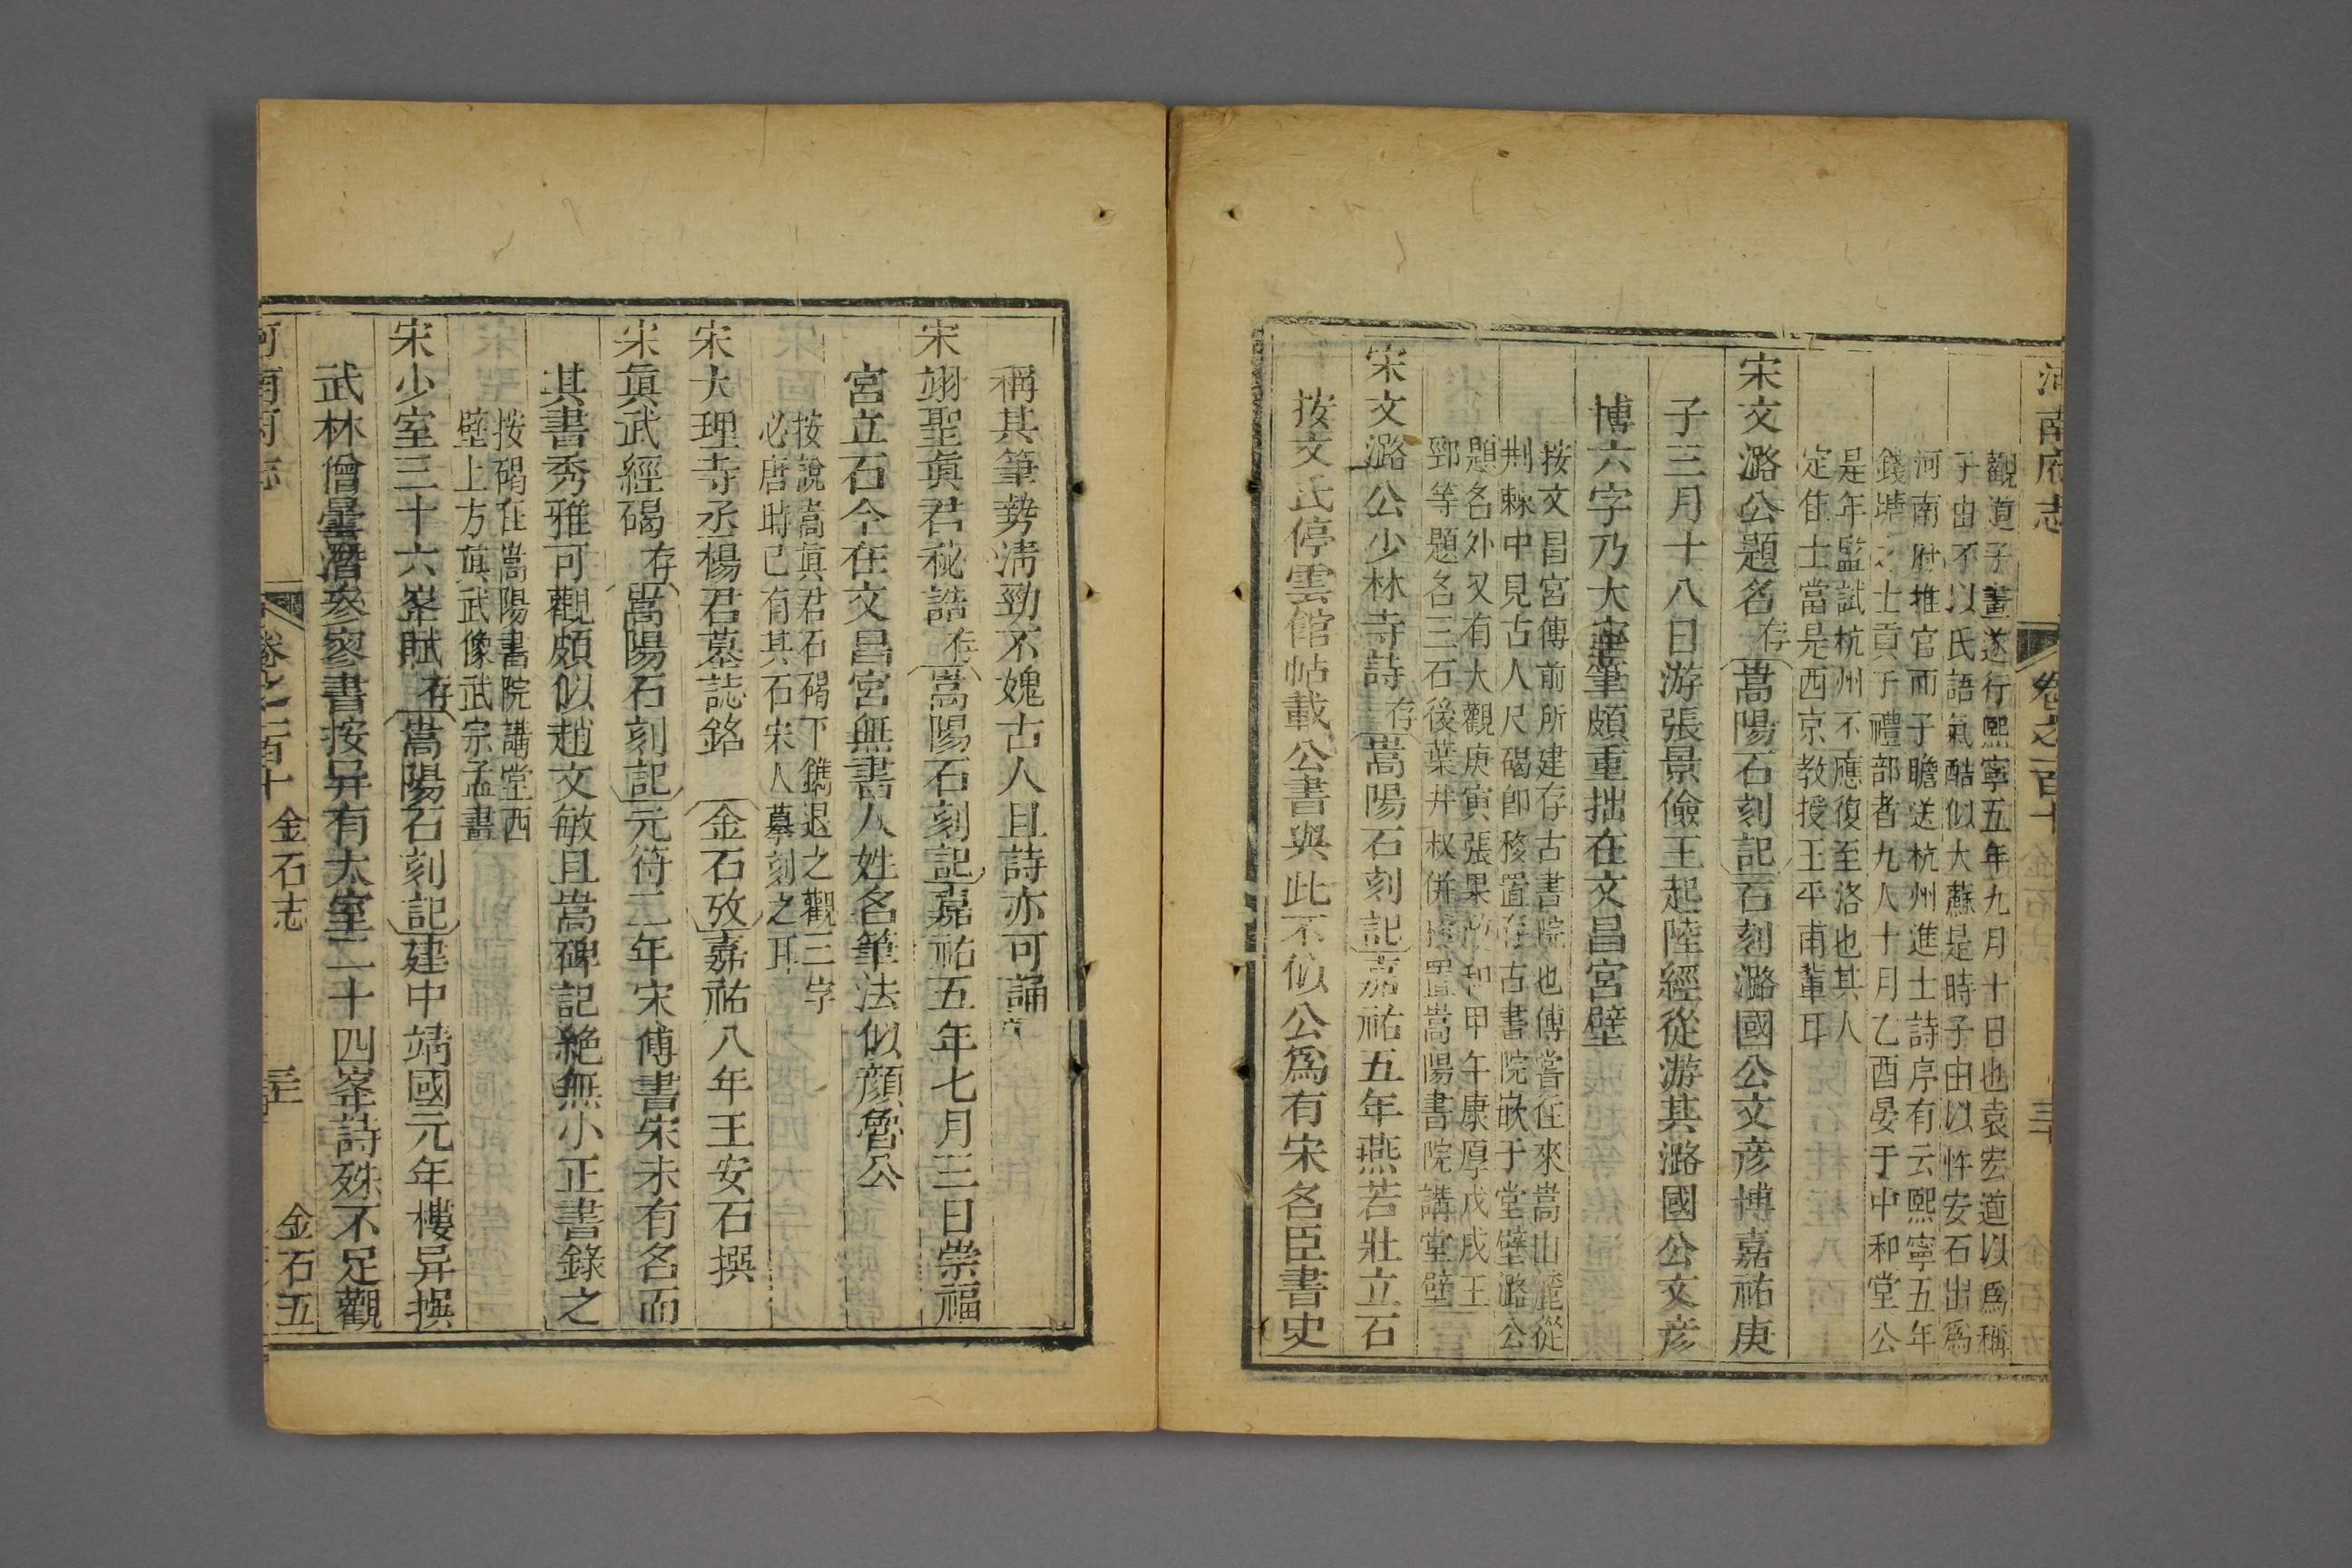 河南府志 卷之一百十 金石志 三十 金石五
觀道子畫遂行熙寧五年九月十日也袁宏道以爲稱
子由不以氏語氣酷似大蘇是時子由以忤安石出爲
河南府推官而子瞻送杭州進士詩序有云熙寧五年
錢塘之士貢于禮部者九人十月乙酉晏于中和堂公
是年監試杭州不應復至洛也其人
定隹士當是西京教授王平甫輩耳
宋文潞公題名存嵩陽石刻記石刻潞國公文彦博嘉祐庚
子三月十八日游張景儉王起陸經從游其潞國公文彦
博六字乃大書筆頗重拙在文昌宮壁
按文昌宮傅前所建存古書院也傅嘗往來嵩山麓從
荆棘中見古人尺碣卽移置存古書院嵌于堂壁潞公
題名外又有大觀庚寅張杲政和甲午康厚戊戌王
鄄等題名三石後葉井叔併置嵩陽書院講堂壁
宋文潞公少林寺詩存嵩陽石刻記嘉祐五年燕若壯立石
按文氏停雲館帖載公書與此不似公爲有宋名臣書史
稱其筆勢淸勁不媿古人且詩亦可誦
宋翊聖眞君祕誥存嵩陽石刻記嘉祐五年七月三日崇福
宮立石今在文昌宮無書人姓名筆法似顔魯公
按說嵩眞君石碣下鐫退之觀三字
必唐時已有其石宋人摹刻之耳
宋大理寺丞楊君墓誌銘 金石攷嘉祐八年王安石撰
宋眞武經碣存嵩陽石刻記元符二年宋傅書宋未有名而
其書秀雅可觀頗似趙文敏且嵩碑記絶無小正書錄之
按碣在嵩陽書院講堂西
壁上方眞武像武宗孟畫
宋少室三十六峯賦存嵩陽石刻記建中靖國元年樓异撰
武林僧曇潛參寥書按异有太室二十四峯詩殊不足觀
河南府志 卷之一百十 金石志 金石五